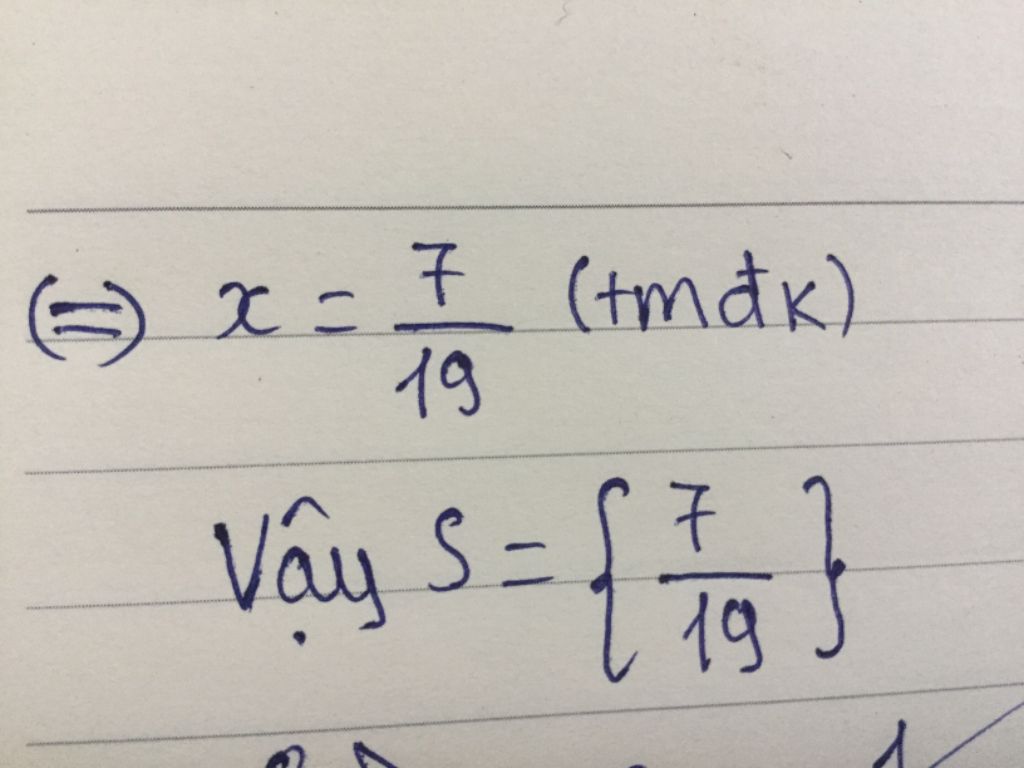 (=) x = 7/19 (tmđk)
Vậy S = {7/19}